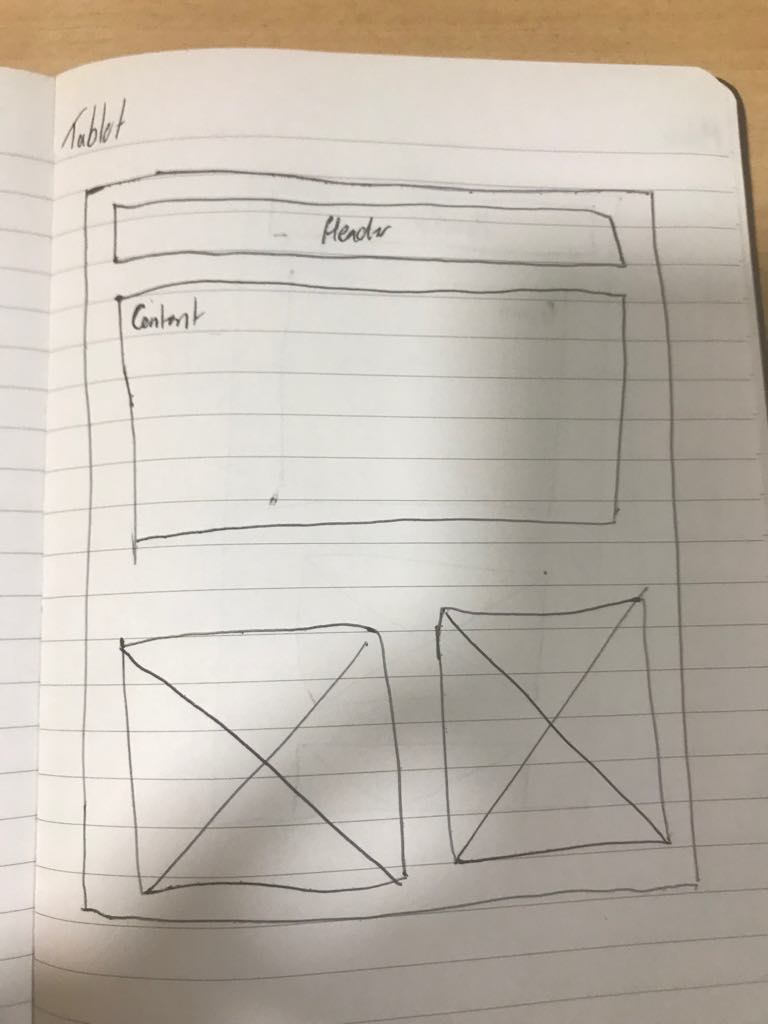 Tablet
Header
Content